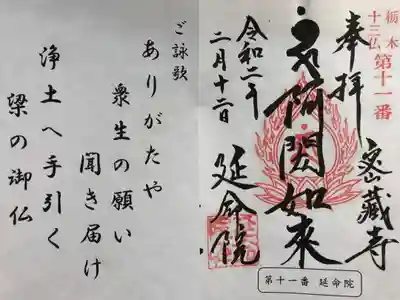 栃木
十三仏
第十一番
奉拝
阿閦如来
蔵寺
令和二年
二月十二日
延命院
第十一番 延命院
ご詠歌
ありがたや
衆生の願い
聞き届け
浄土へ手引く
梁の御仏